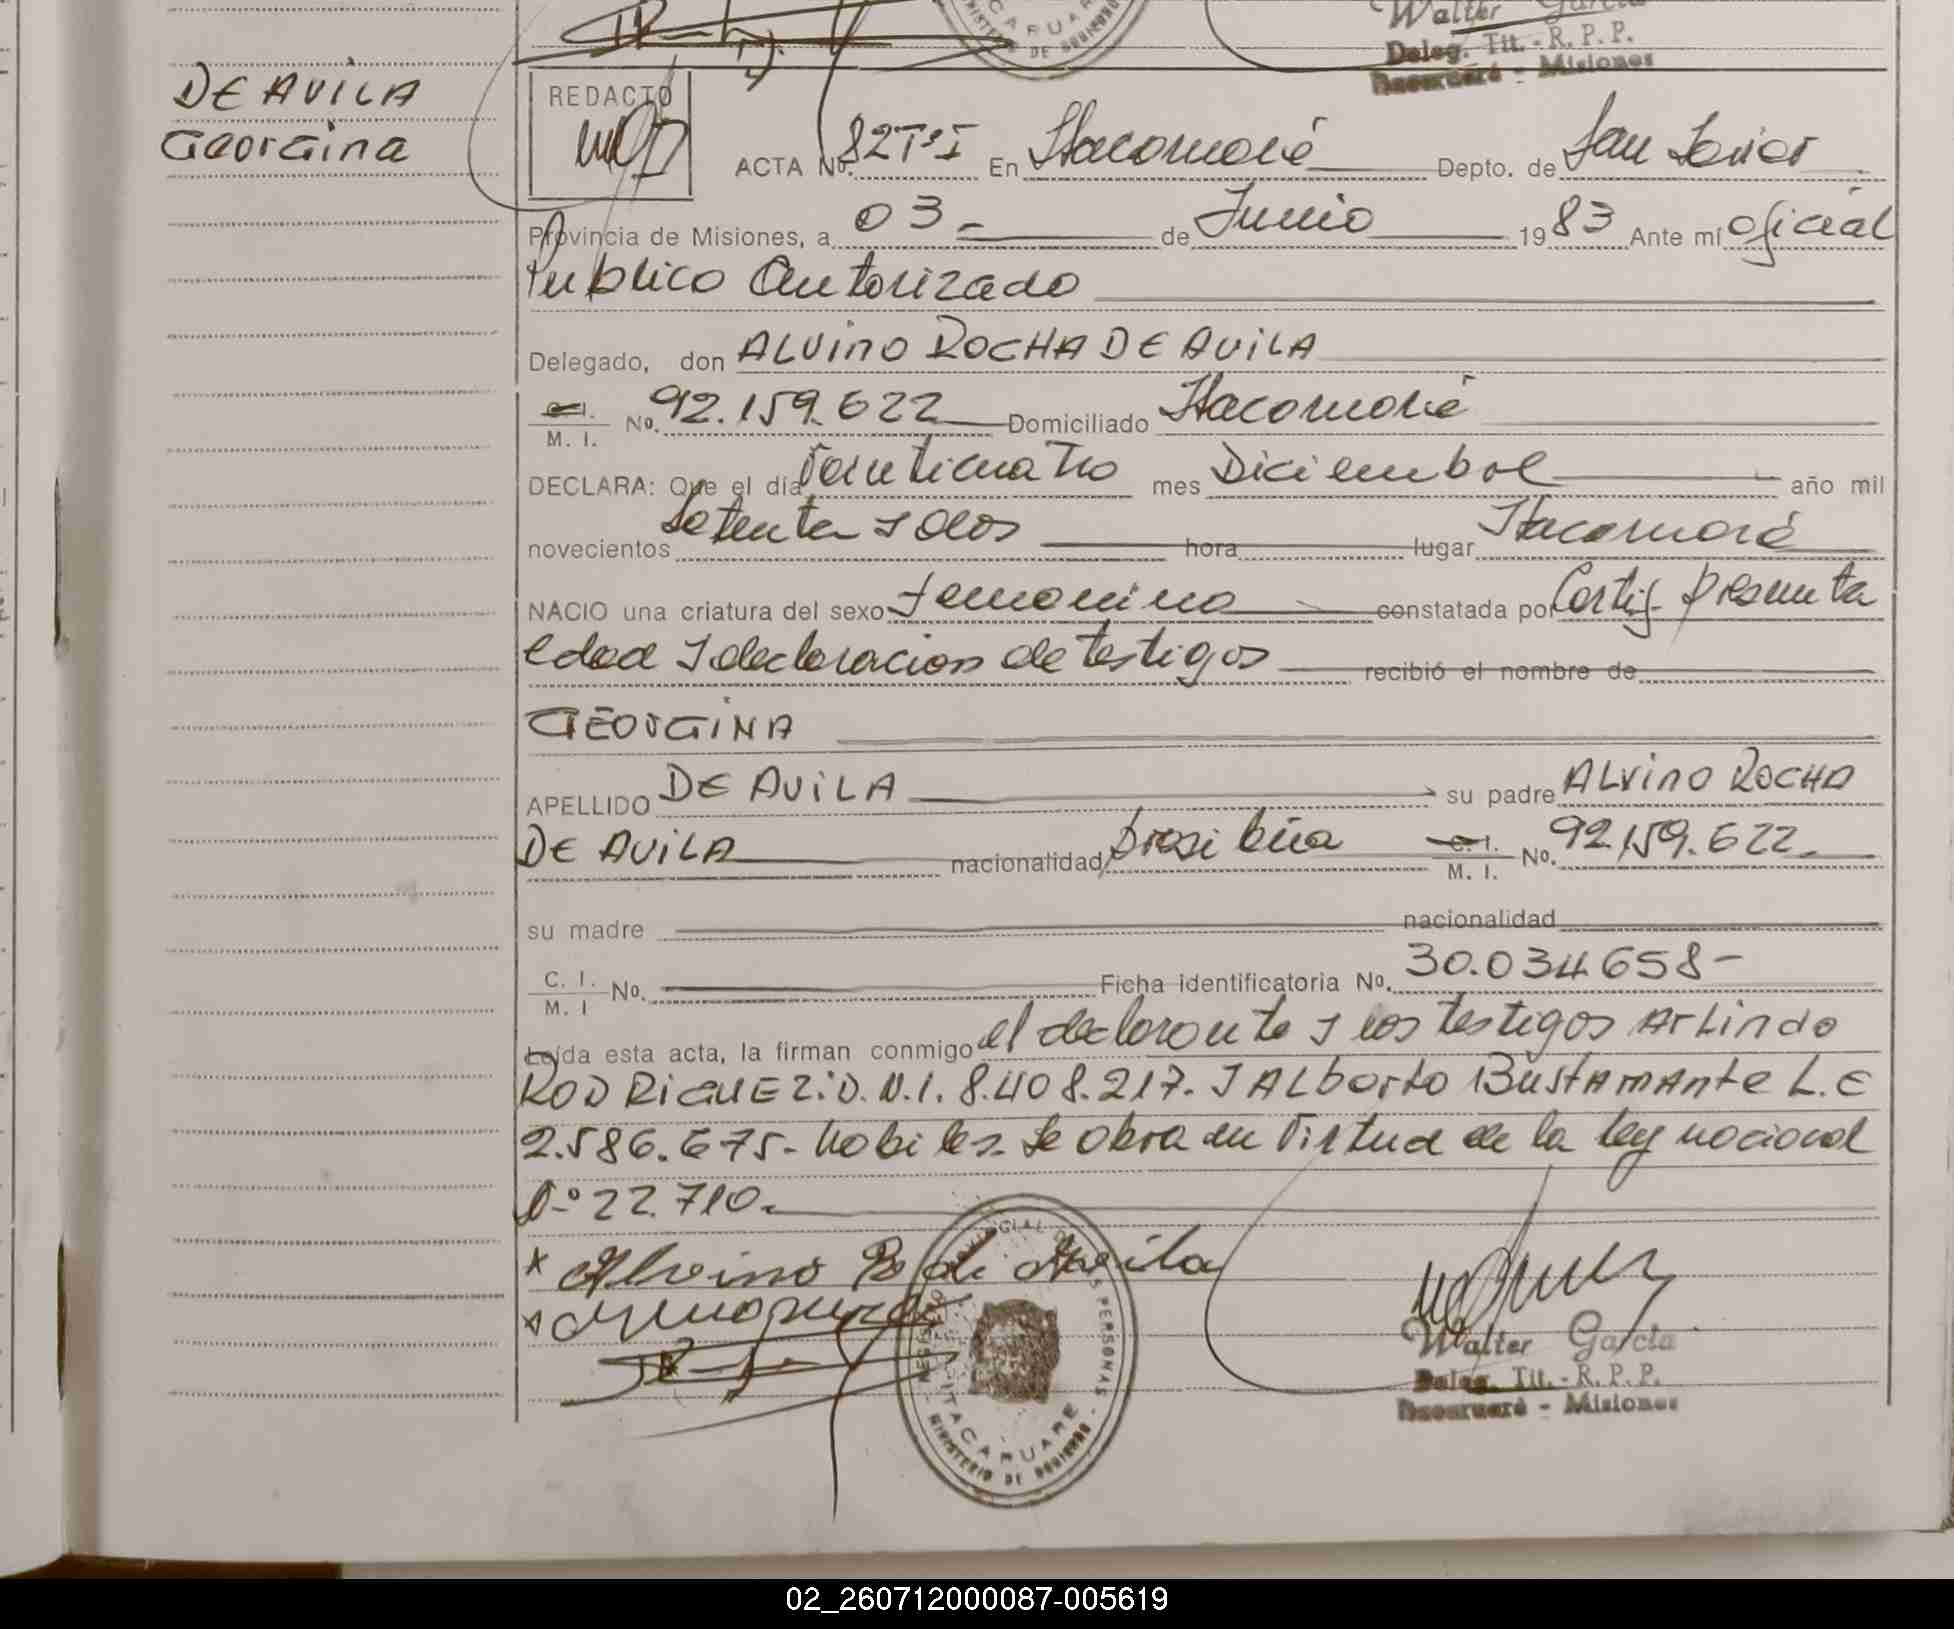 Walter García
Deleg. Tit. - R. P. P.
Itacaruaré - Misiones
DE AVILA
Georgina
REDACTO
ACTA Nº. 82TºI En Itacaruaré Depto. de San Javier
Provincia de Misiones, a 03- de Junio 1983 Ante mí oficial
Publico Autorizado
Delegado, don ALVINO ROCHA DE AVILA
C. I. M. I. Nº. 92.159.622 Domiciliado Itacaruaré
DECLARA: Que el día Veinticuatro mes Diciembre año mil
novecientos Setenta y dos hora lugar Itacaruaré
NACIO una criatura del sexo femenino constatada por Certif. presunta
edad y declaracion de testigos recibió el nombre de
GEORGINA
APELLIDO DE AVILA su padre ALVINO ROCHA
DE AVILA nacionalidad brasileña C. I. M. I. Nº. 92.159.622.
su madre nacionalidad
C. I. M. I Nº. Ficha identificatoria Nº. 30.034658-
Leída esta acta, la firman conmigo el declarante y los testigos Arlindo
RODRIGUEZ: D.N.I. 8.408.217. y ALberto BustAmAnte L.E
2.586.675- habiles. Se obra en Virtud de la ley nacional
Nº 22.710.
x Alvino R de Avila
REGISTRO PROVINCIAL DE LAS PERSONAS
ITACARUARE
MINISTERIO DE GOBIERNO
Walter García
Deleg. Tit. - R. P. P.
Itacaruaré - Misiones
02_260712000087-005619